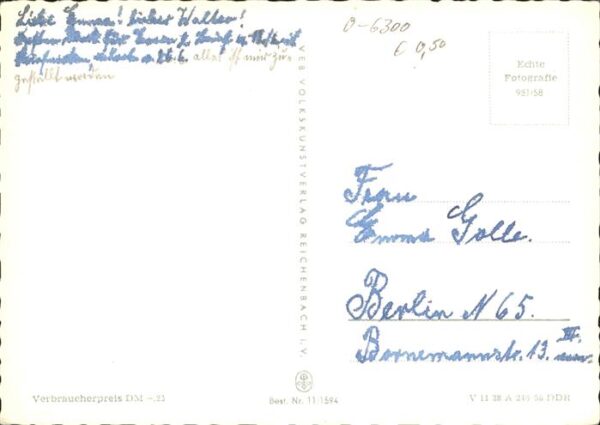 Liebe Emma! Lieber Walter!
alles ist mir zu-
gestellt worden
0-6300
€ 0,50
Echte
Fotografie
981/58
VEB VOLKSKUNSTVERLAG REICHENBACH I. V.
Frau
Emma Golle.
Berlin N 65.
Bornemannstr. 13. III.
Verbraucherpreis DM -,25
Best. Nr. 11-1594
V 11 28 A 246 56 DDR